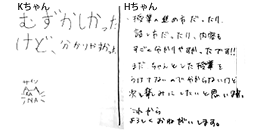 Kちゃん
むずかしかった
けど、分かりやすかった
サイン
Hちゃん
授業の進め方だったり、
話し方だったり、内容も
すごく分かりやすかったです!!
まだちゃんとした授業を
うけてないので分からないけど
楽しみにしたいと思います。
これから
よろしくおねがいします。